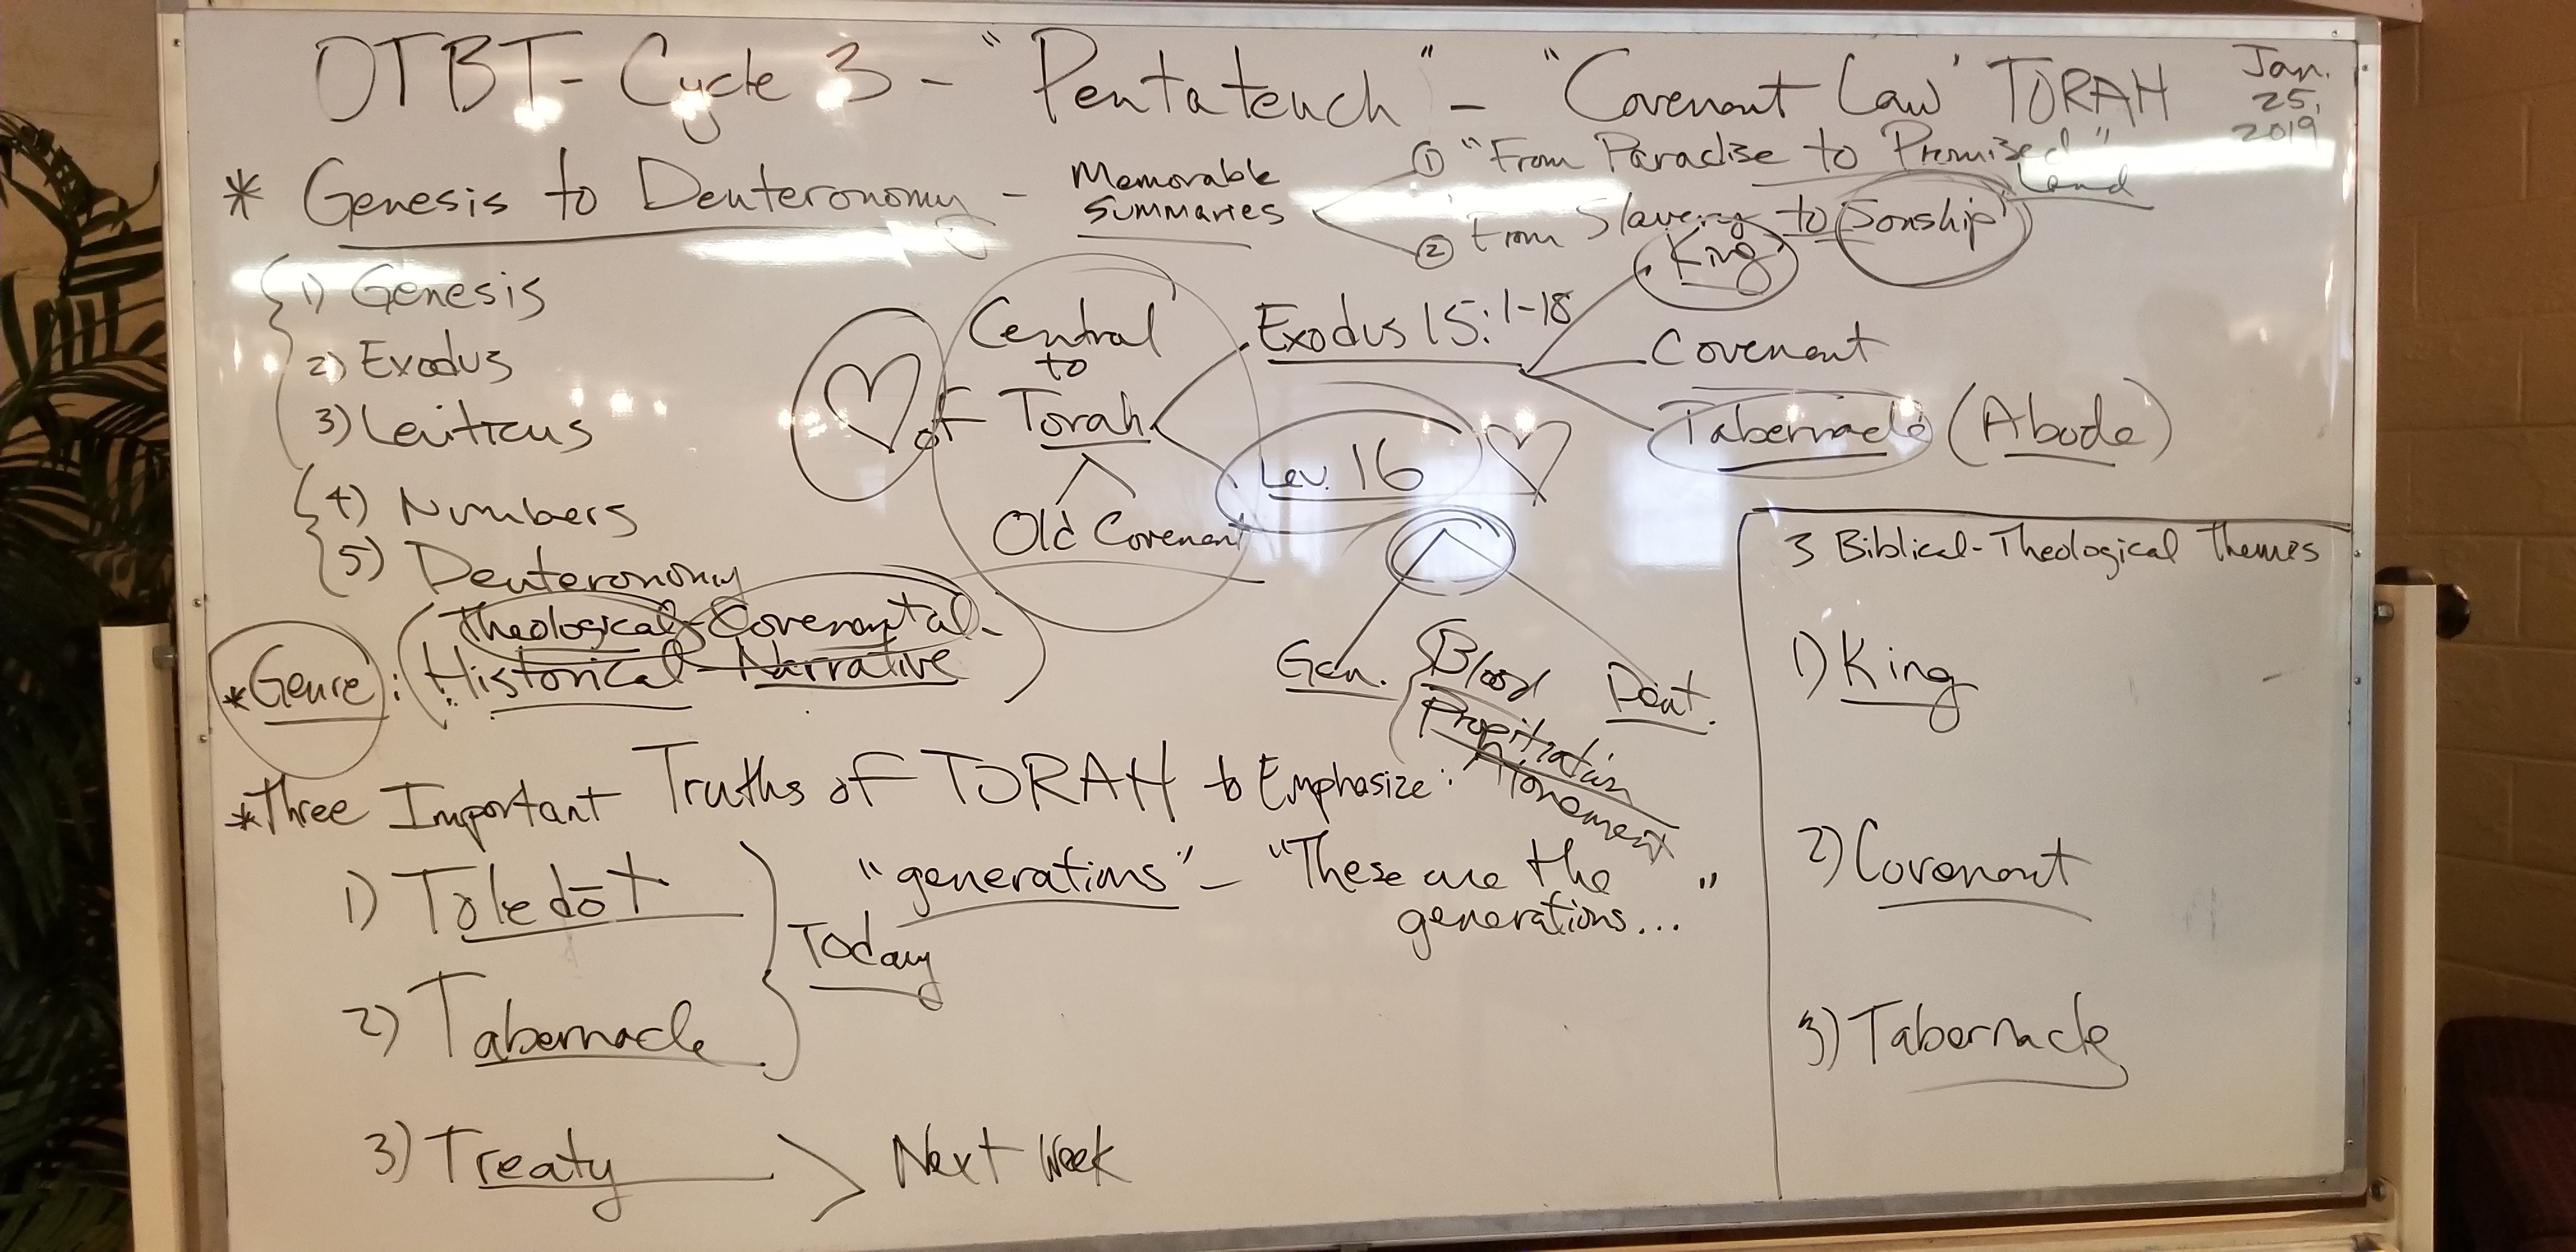 OTBT - Cycle 3 - "Pentateuch" - "Covenant Law" TORAH
Jan. 25, 2019
* Genesis to Deuteronomy - Memorable Summaries
① "From Paradise to Promised" Land
② "From Slavery to Sonship"
1) Genesis
2) Exodus
3) Leviticus
4) Numbers
5) Deuteronomy
♡ of
Central
to
Torah
Old Covenant
Exodus 15:1-18
King
Covenant
Tabernacle (Abode)
Lev. 16 ♡
Gen.
Blood
Propitiation
Atonement
Deut.
* Genre: (Theological-Covenantal-
Historical-Narrative)
* Three Important Truths of TORAH to Emphasize:
1) Toledōt
"generations" - "These are the
generations..."
2) Tabernacle
Today
3) Treaty > Next Week
3 Biblical-Theological Themes
1) King
2) Covenant
3) Tabernacle